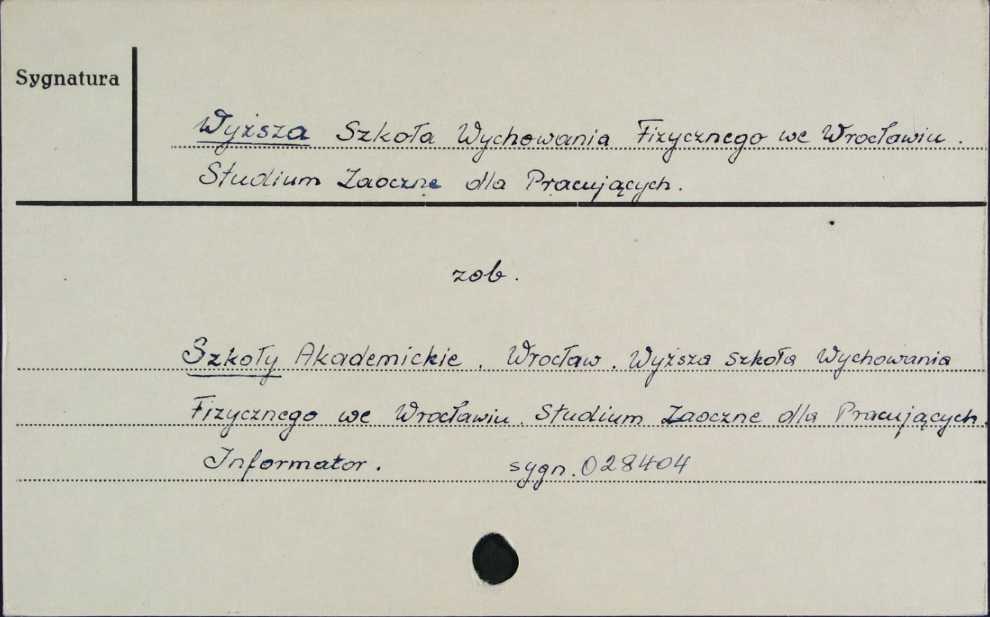 Sygnatura
Wyższa Szkoła Wychowania Fizycznego we Wrocławiu.
Studium Zaoczne dla Pracujących.
zob.
Szkoły Akademickie. Wrocław. Wyższa Szkoła Wychowania
Fizycznego we Wrocławiu. Studium Zaoczne dla Pracujących.
Informator. sygn. 028404